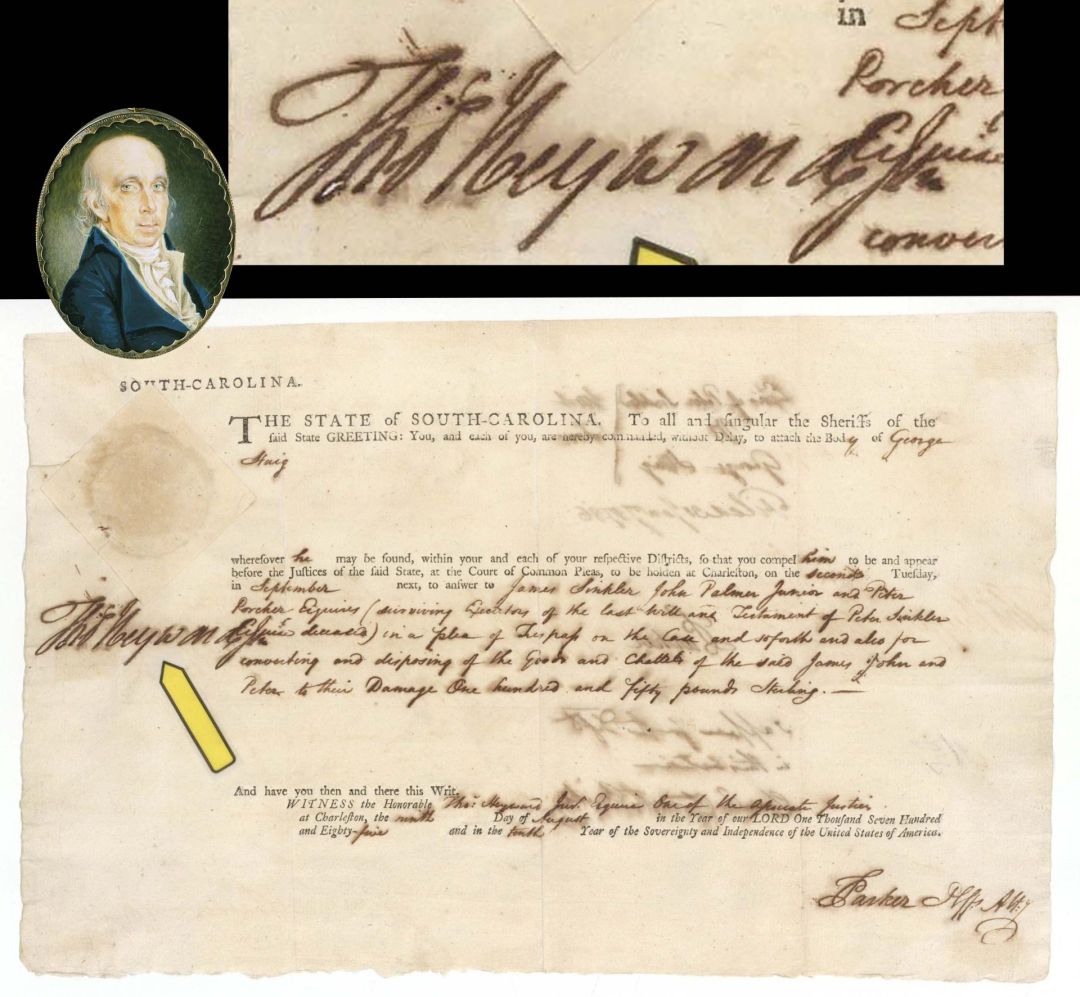 in Sept
Porcher
Thos Heyward Esquire Junr
conver
SOUTH-CAROLINA.
THE STATE of SOUTH-CAROLINA. To all and singular the Sheriffs of the
said State GREETING: You, and each of you, are hereby commanded, without Delay, to attach the Body of George
Haig
wheresoever he may be found, within your and each of your respective Districts, so that you compel him to be and appear
before the Justices of the said State, at the Court of Common Pleas, to be holden at Charleston, on the second Tuesday,
in September next, to answer to James Sinkler John Palmer Junior and Peter
Porcher Esquires (surviving Executors of the last will and Testament of Peter Sinkler
Thos Heyward Junr Esquire deceased) in a plea of Trespass on the Case and soforth and also for
converting and disposing of the Goods and Chattels of the said James John and
Peter to their Damage One hundred and fifty pounds Sterling. —
And have you then and there this Writ.
WITNESS the Honorable Thos: Heyward Junr. Esquire One of the Associate Justices
at Charleston, the ninth Day of August in the Year of our LORD One Thousand Seven Hundred
and Eighty-five and in the tenth Year of the Sovereignty and Independence of the United States of America.
Parker Plffs Atty